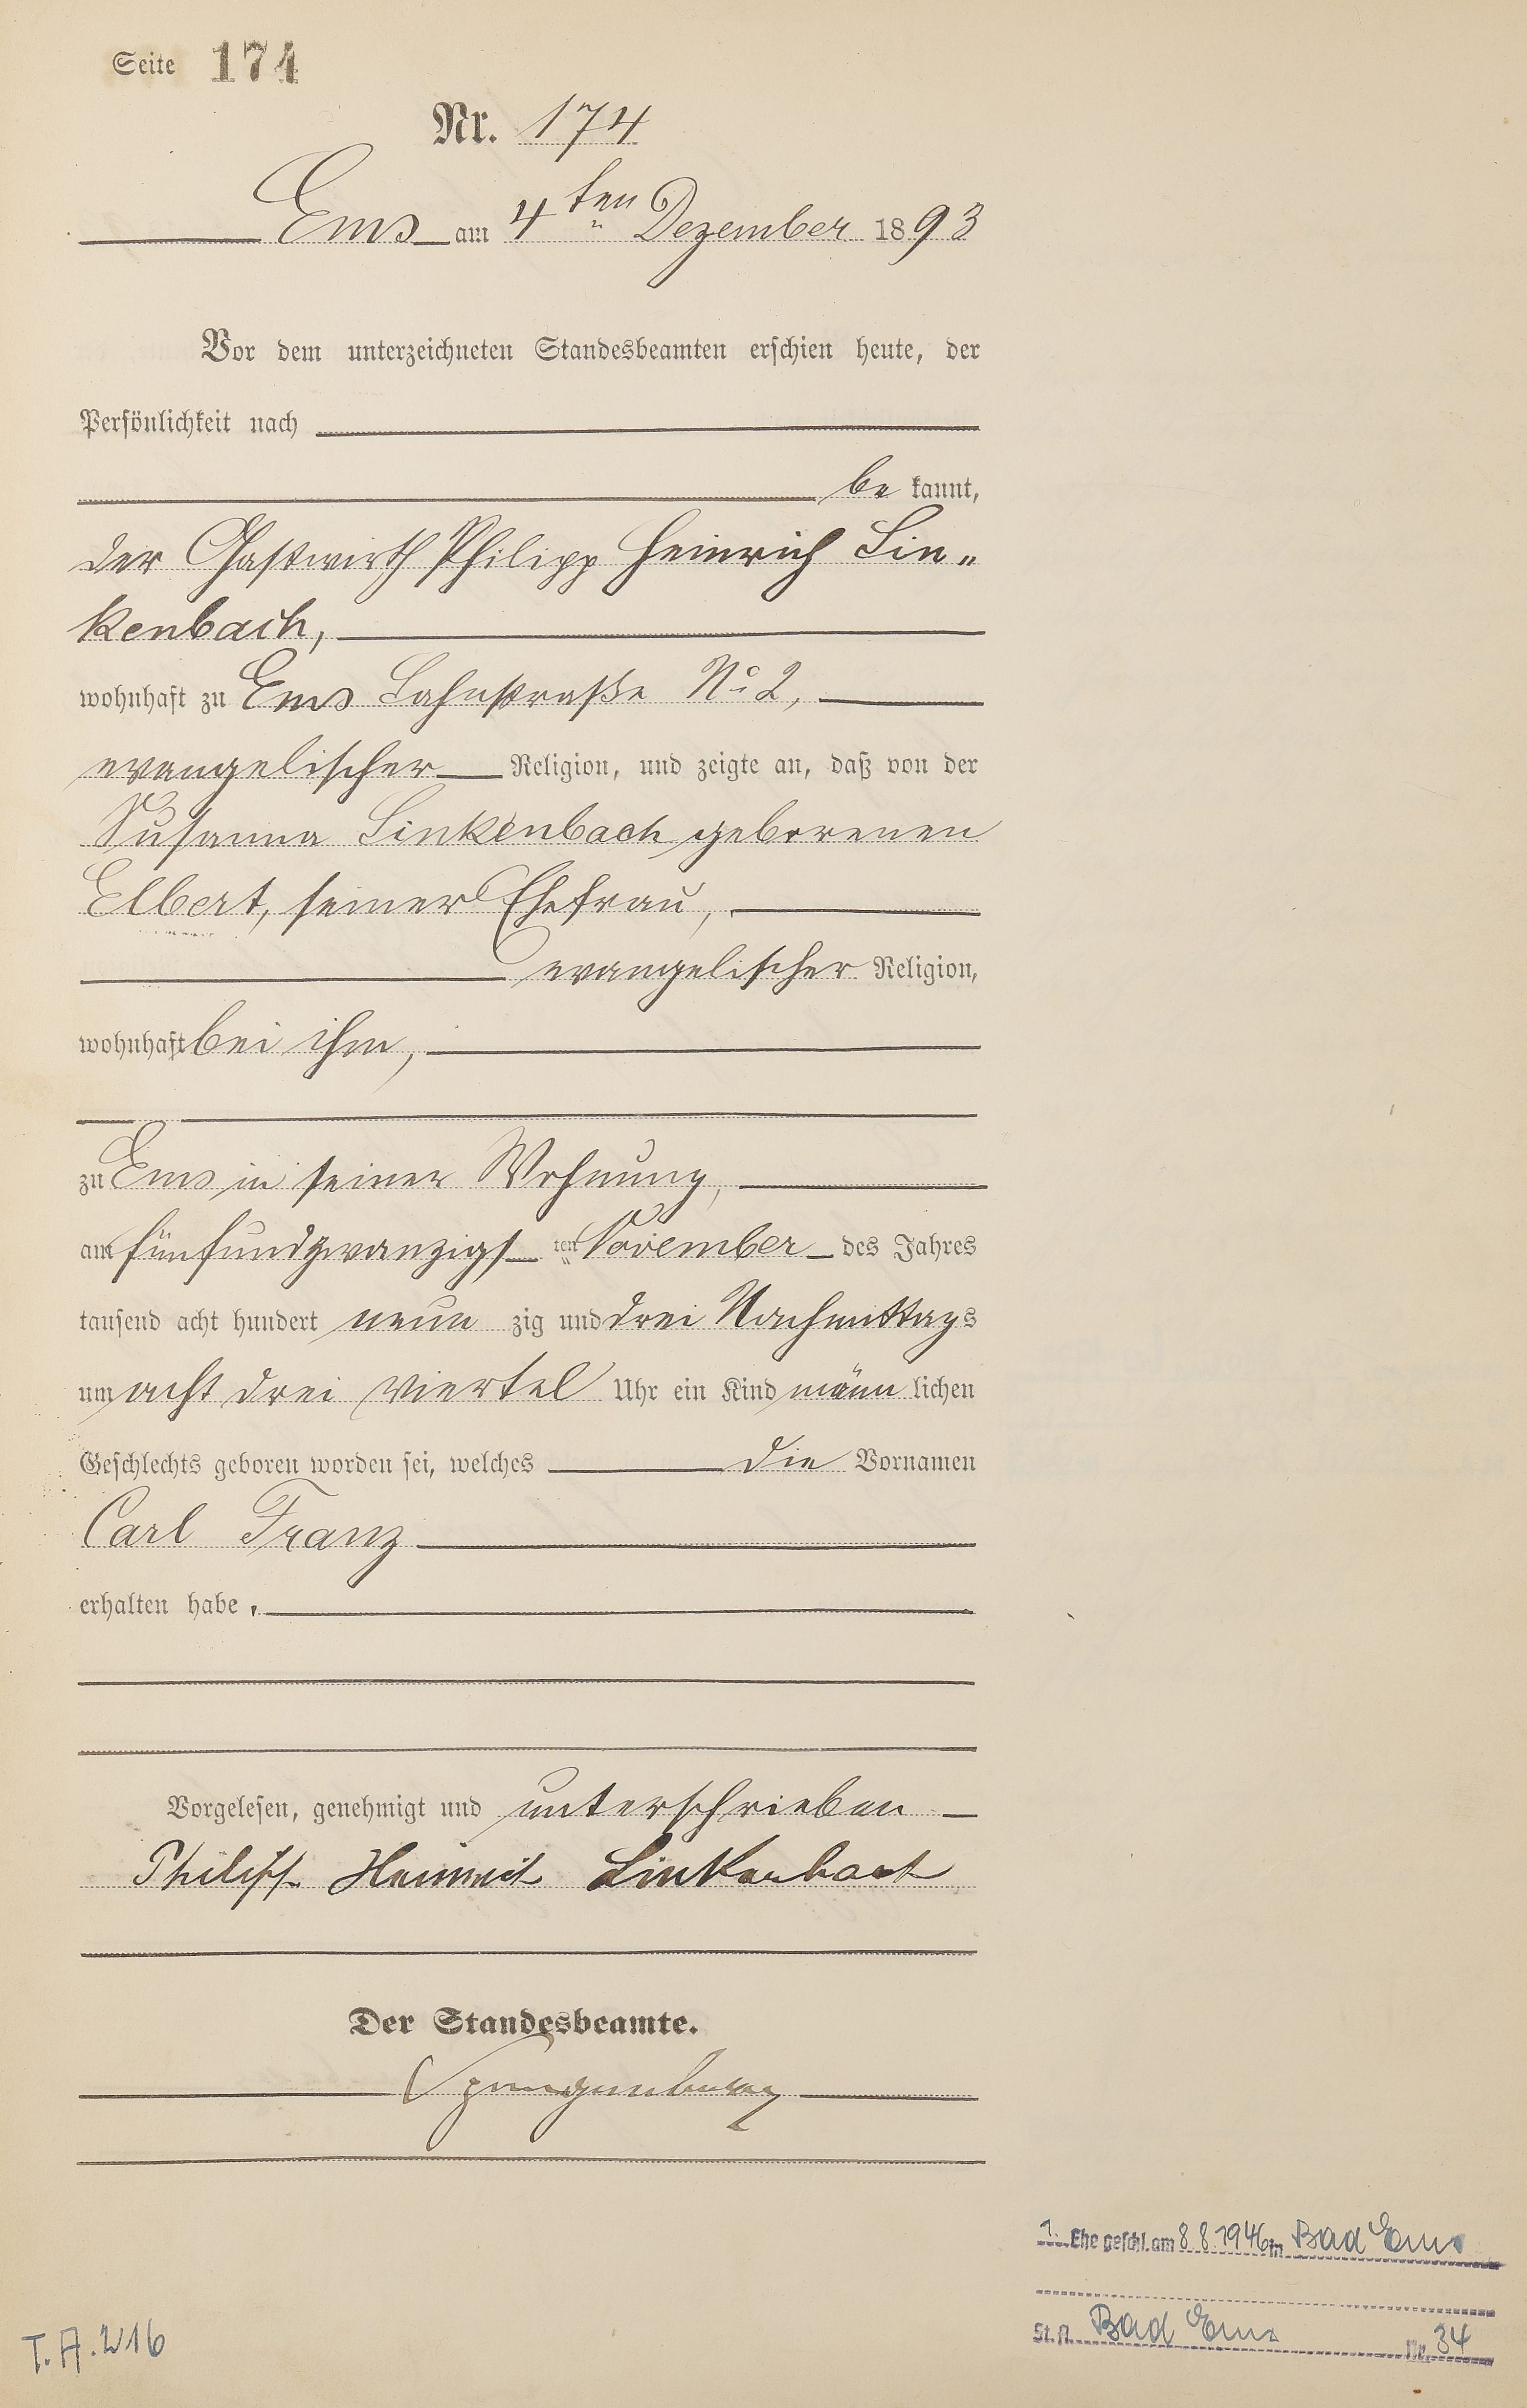 Seite 174
Nr. 174
Ems am 4ten Dezember 1893
Vor dem unterzeichneten Standesbeamten erschien heute, der
Persönlichkeit nach
be kannt,
der Gastwirth Philipp Heinrich Lin„
kenbach,
wohnhaft zu Ems Lahnstraße No 2,
evangelischer Religion, und zeigte an, daß von der
Susanna Linkenbach geborenen
Elbert, seiner Ehefrau,
evangelischer Religion,
wohnhaft bei ihm,
zu Ems in seiner Wohnung,
am fünfundzwanzigs ten November des Jahres
tausend acht hundert neun zig und drei Nachmittags
um acht drei viertel Uhr ein Kind männ lichen
Geschlechts geboren worden sei, welches die Vornamen
Carl Franz
erhalten habe.
Vorgelesen, genehmigt und unterschrieben
Philipp Heinrich Linkenbach
Der Standesbeamte.
1. Ehe geschl. am 8.8.1946 in Bad Ems
St. A. Bad Ems Nr. 34
T. A. 216